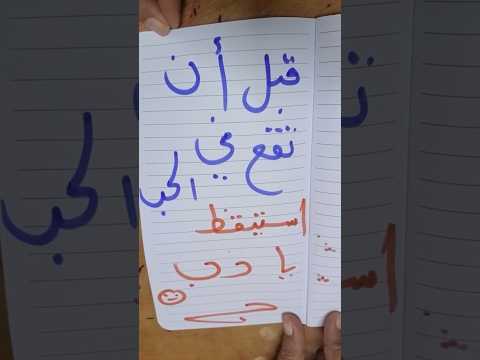 قبل أن
تقع في الحب
استيقظ
يا